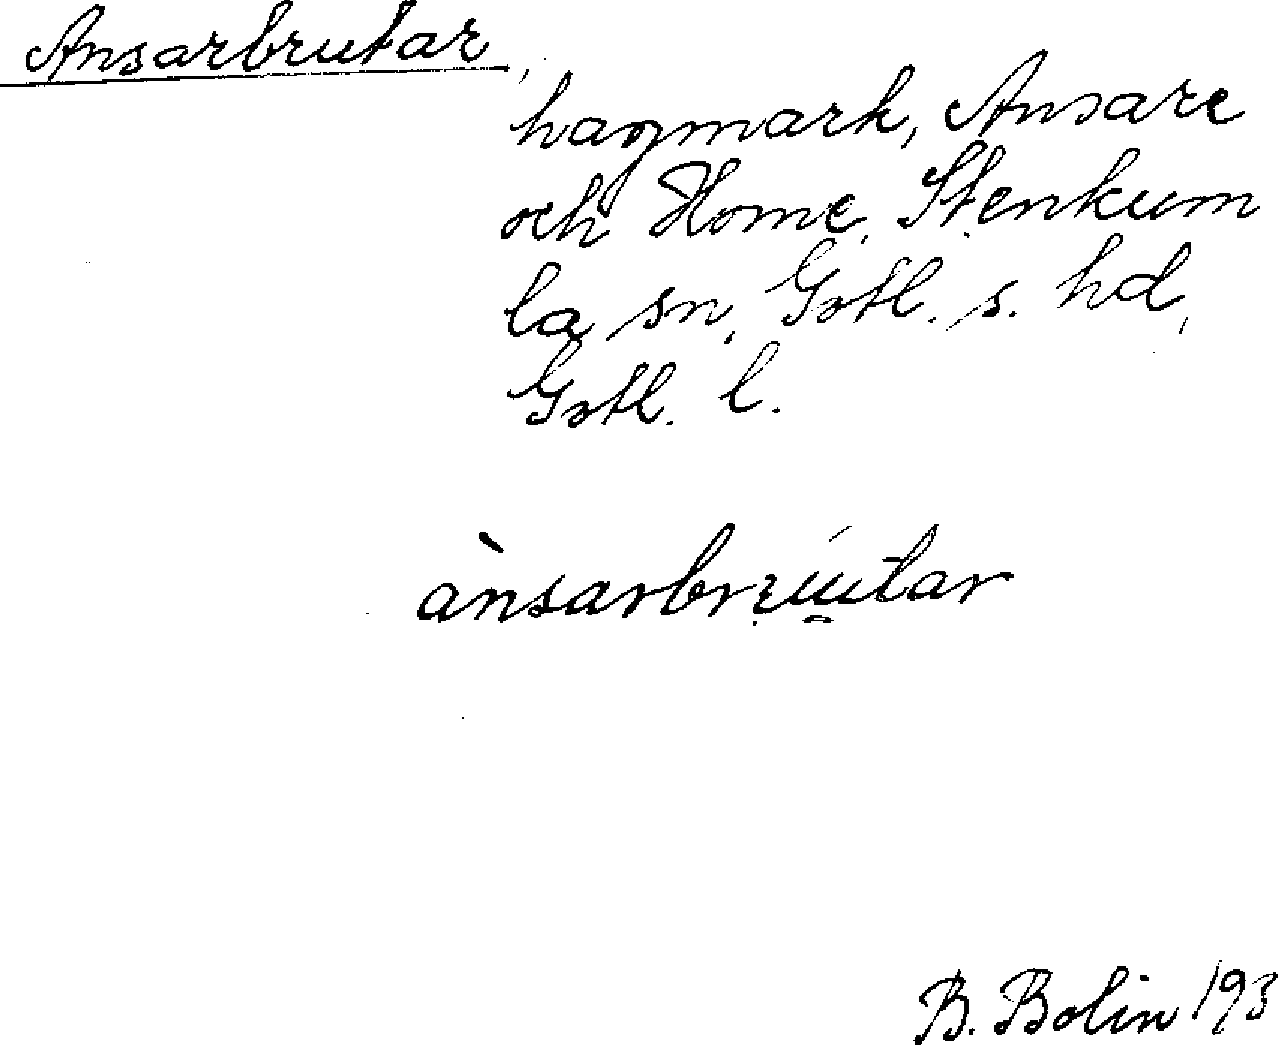 Ansarbrutar,
hagmark, Ansare
och Home, Stenkum
la sn, Gotl. s. hd,
Gotl. l.
ànsarbrútar
B. Bolin 193